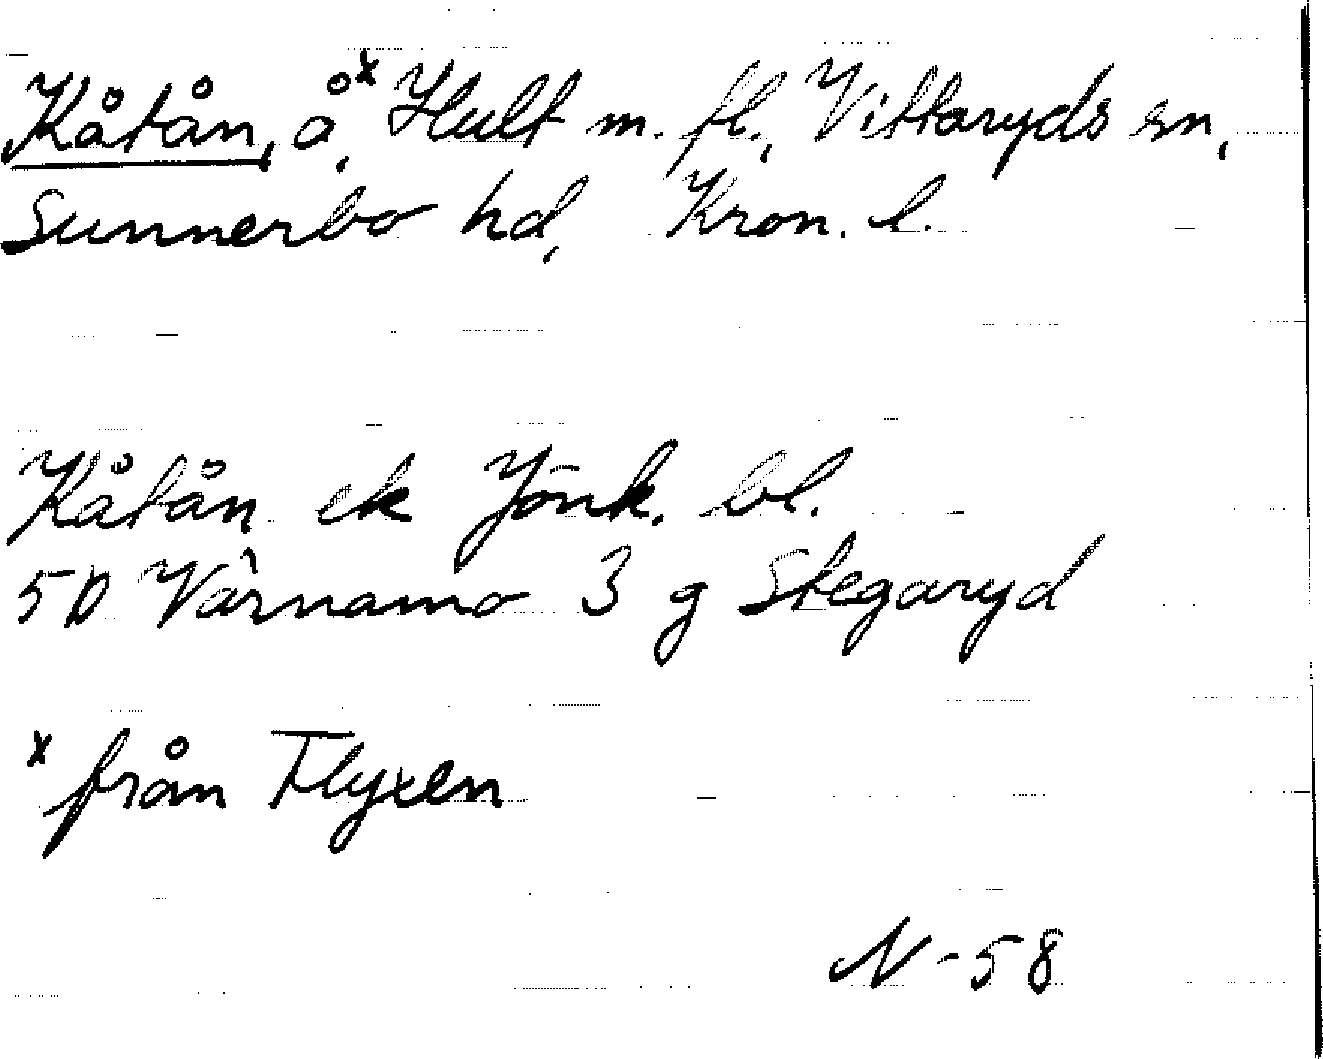 Kåtån, å,x Hult m. fl., Vittaryds sn,
Sunnerbo hd, Kron. l.
Kåtån ek Jönk. bl.
5D Värnamo 3 g Stegaryd
x från Flyxen
N-58